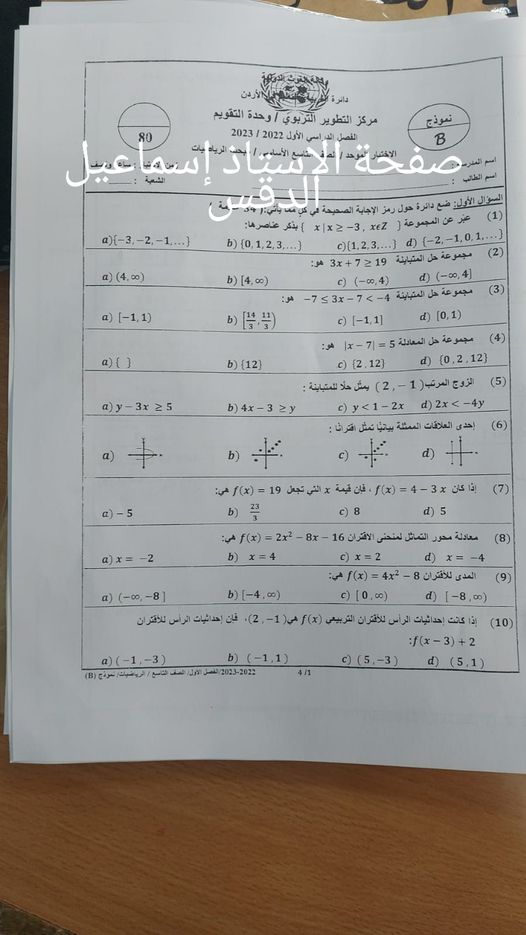 دائرة
مركز التطوير التربوي / وحدة التقويم
الفصل الدراسي الأول 2022 / 2023
الاختبار الموحد / الصف التاسع الأساسي / مبحث الرياضيات
نموذج
B
80
صفحة الاستاذ إسماعيل
الدقس
اسم المدرسة:
اسم الطالب :
الشعبة :
السؤال الأول: ضع دائرة حول رمز الإجابة الصحيحة في كل مما يأتي:
(1) عبّر عن المجموعة { x | x ≥ −3 , xϵZ } بذكر عناصرها:
a){−3, −2, −1,…} b) {0, 1, 2, 3,…} c){1, 2, 3,…} d) {−2, −1, 0, 1,…}
(2) مجموعة حل المتباينة 3x + 7 ≥ 19 هو:
a) (4, ∞) b) [4, ∞) c) (−∞, 4) d) (−∞, 4]
(3) مجموعة حل المتباينة −7 ≤ 3x − 7 < −4 هو:
a) [−1, 1) b) [14/3, 11/3) c) [−1, 1] d) [0, 1)
(4) مجموعة حل المعادلة |x − 7| = 5 هو:
a) { } b) {12} c) {2, 12} d) {0, 2, 12}
(5) الزوج المرتب (2, −1) يمثل حلًا للمتباينة :
a) y − 3x ≥ 5 b) 4x − 3 ≥ y c) y < 1 − 2x d) 2x < −4y
(6) إحدى العلاقات الممثلة بيانيًا تمثل اقترانًا :
a) b) c) d)
(7) إذا كان f(x) = 4 − 3x ، فإن قيمة x التي تجعل f(x) = 19 هي:
a) − 5 b) 23/3 c) 8 d) 5
(8) معادلة محور التماثل لمنحنى الاقتران f(x) = 2x² − 8x − 16 هي:
a) x = −2 b) x = 4 c) x = 2 d) x = −4
(9) المدى للأقتران f(x) = 4x² − 8 هي:
a) (−∞, −8] b) [−4, ∞) c) [0, ∞) d) [−8, ∞)
(10) إذا كانت إحداثيات الرأس للأقتران التربيعي f(x) هي (2, −1)، فإن إحداثيات الرأس للأقتران
f(x − 3) + 2:
a) (−1, −3) b) (−1, 1) c) (5, −3) d) (5, 1)
2023-2022/الفصل الأول/ الصف التاسع / الرياضيات/ نموذج (B) 4 /1